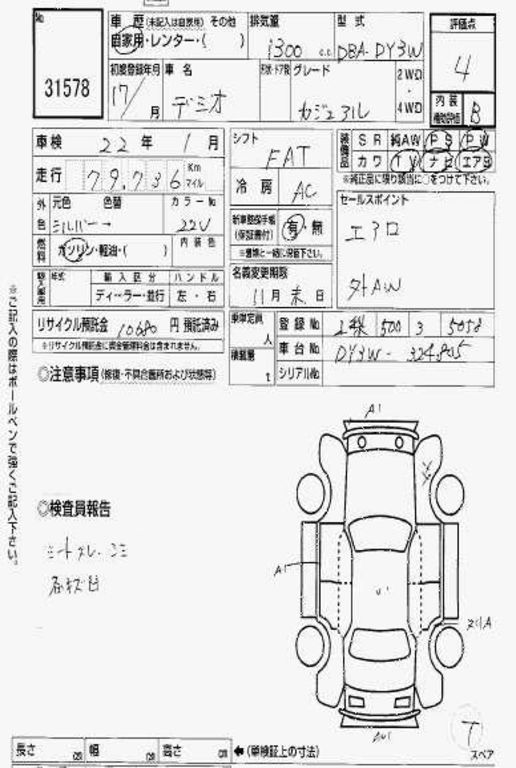 No
31578
車歴 (未記入は自家用) その他
自家用・レンター・( )
排気量
1300 c.c.
型式
DBA-DY3W
評価点
4
初度登録年月
17/ 月
車名
デミオ
形状・ドア数
グレード
カジュアル
2WD
・
4WD
内装
補助評価
B
車検 22年 1月
走行 79,736 Km マイル
シフト
FAT
冷房 AC
装備品
SR 純AW PS PW
カワ TV ナビ エアB
※純正品に限り該当に○をつけて下さい。
外色
元色 色替
シルバー→
カラーNo
22V
燃料
ガソリン・軽油・( )
内装色
新車整備手帳
(保証書付)
有・無
※書類と一緒に保管下さい
セールスポイント
エアロ
外AW
輸入車用
年式
輸入区分
ディーラー・並行
ハンドル
左・右
名義変更期限
11月 末日
リサイクル預託金 10680 円 預託済み
※リサイクル預託金に資金管理料金は含まれません。
乗車定員
人
積載量
t
登録No 500 3 5058
車台No DY3W-324805
シリアルNo
◎注意事項 (修復・不具合箇所および状態等)
※ご記入の際はボールペンで強くご記入下さい。
◎検査員報告
シートスレ・コゲ
各キズ凹
A1
A1
U1
スリA
T
スペア
長さ cm 幅 cm 高さ cm ←(車検証上の寸法)